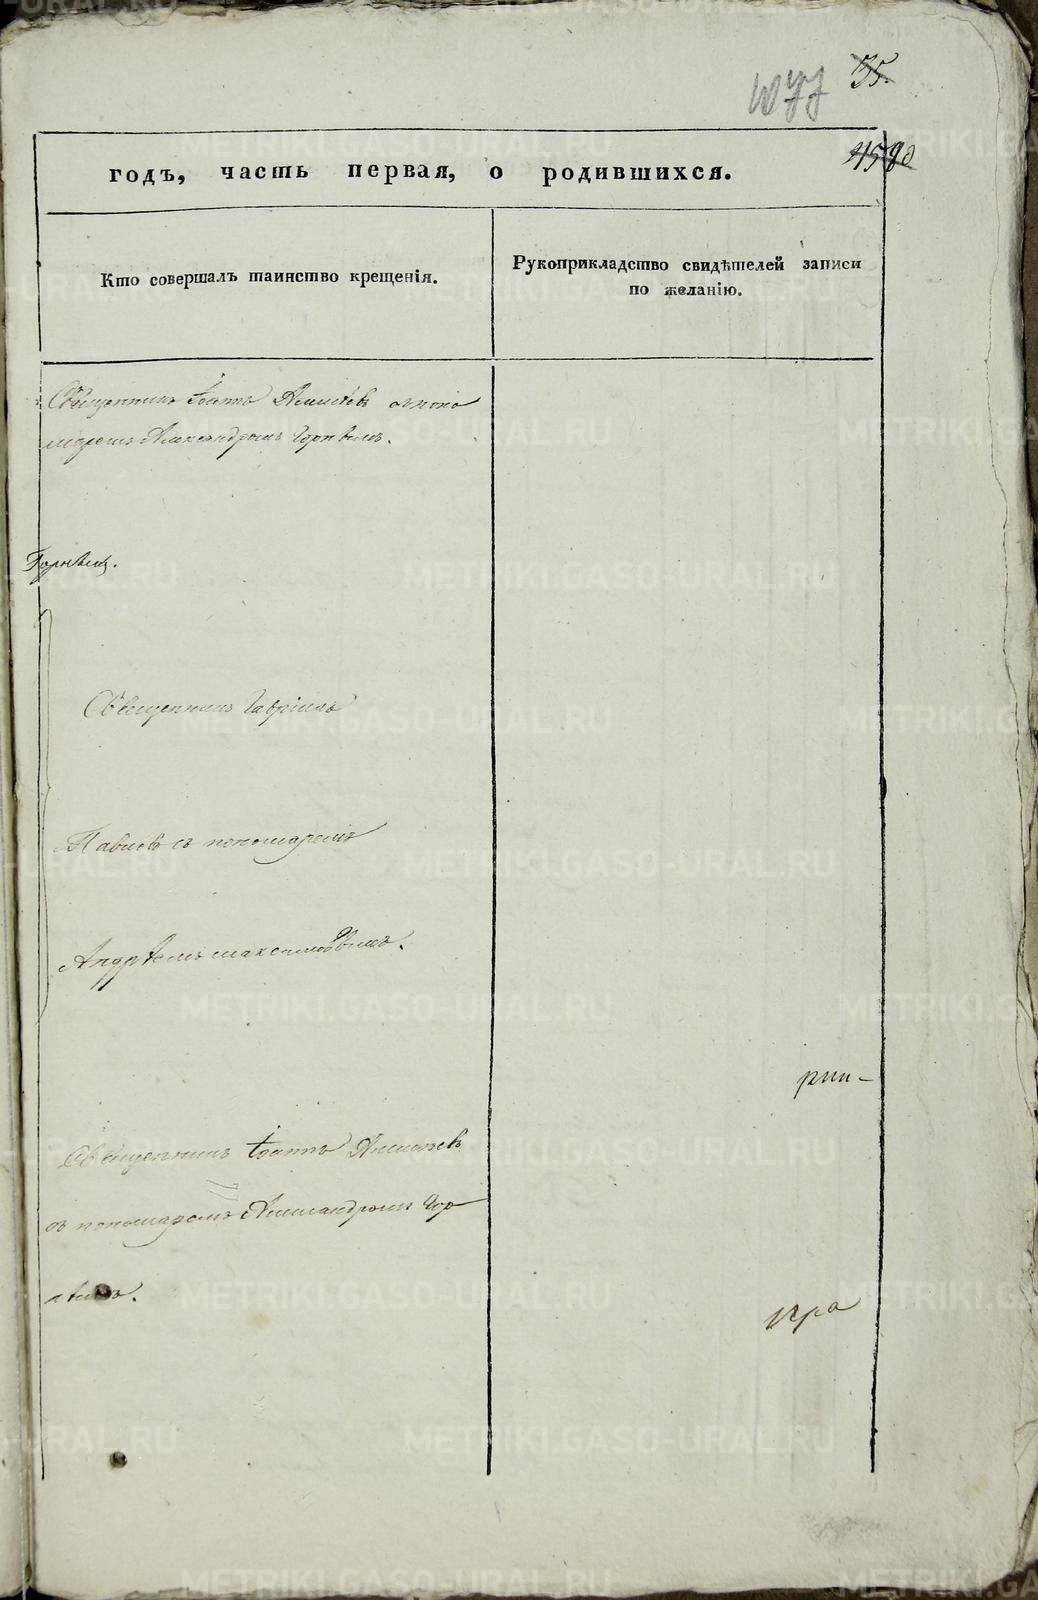 75.
годъ, часть первая, о родившихся.
Кто совершалъ таинство крещенія.
Рукоприкладство свидѣтелей записи
по желанію.
Священникъ Іоаннъ с поно
маремъ Александромъ
Священникъ Гавріилъ
Павловъ съ пономаремъ
Андрѣемъ Максимовымъ.
рии-
Священникъ Іоаннъ
съ пономаремъ Александромъ Гор
кра
METRIKI.GASO-URAL.RU